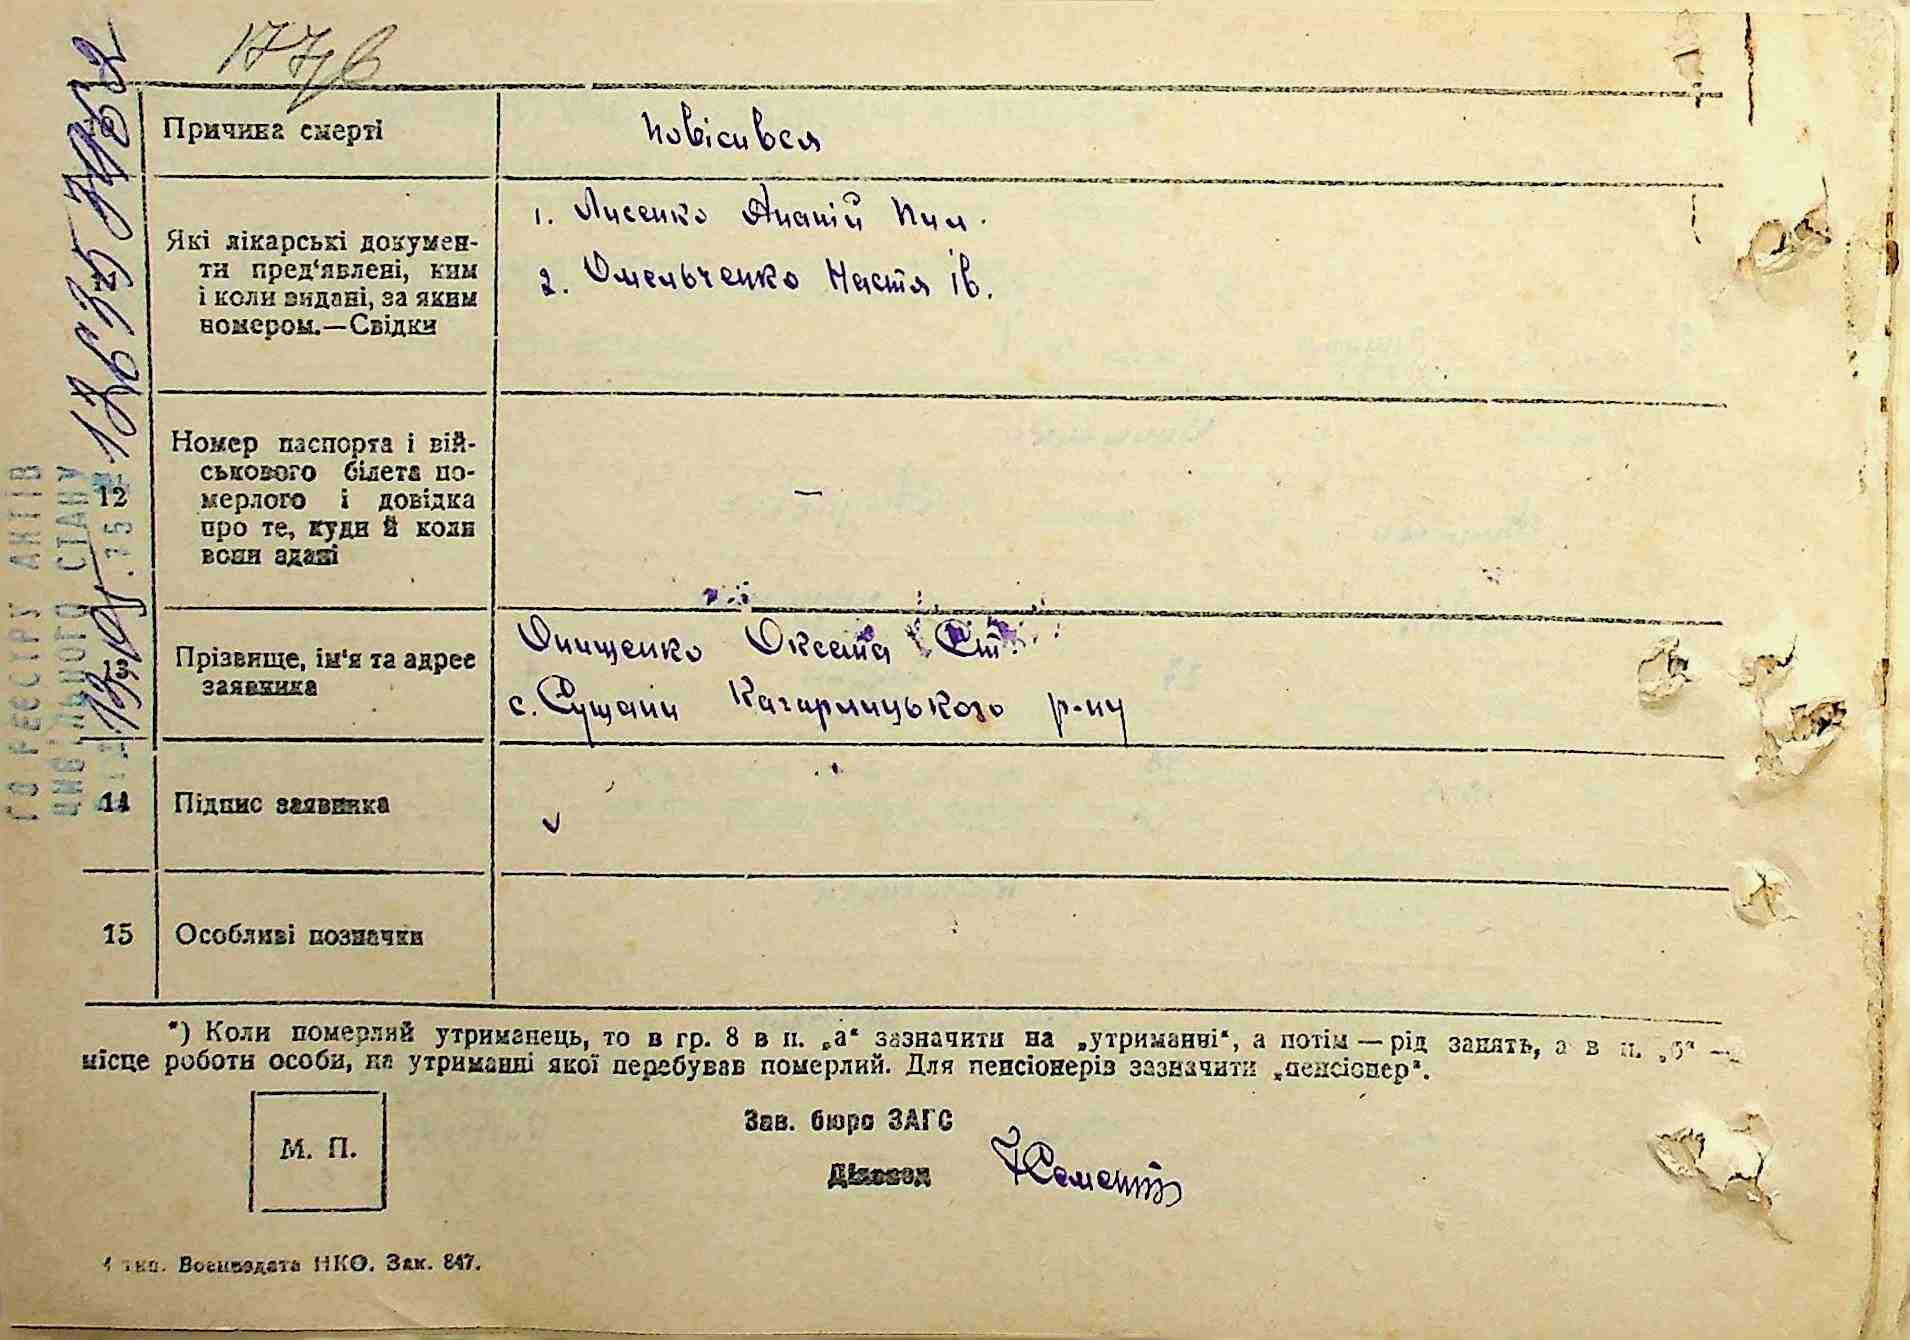 177б
Причина смерті
повісився
Які лікарські докумен-
ти пред'явлені, ким
і коли видані, за яким
номером.—Свідки
1. Лисенко Ананій Пил.
2. Омельченко Настя Ів.
12
Номер паспорта і вій-
ськового білета по-
мерлого і довідка
про те, куди й коли
вони здані
—
13
Прізвище, ім'я та адрес
заявника
Онищенко Оксана Ст.
с. Сущани Кагарлицького р-ну
14
Підпис заявника
15
Особливі позначки
*) Коли померлий утриманець, то в гр. 8 в п. „а" зазначити на „утриманні", а потім — рід занять, а в п. „б" —
місце роботи особи, на утриманні якої перебував померлий. Для пенсіонерів зазначити „пенсіонер".
М. П.
Зав. бюро ЗАГС
Діловод
тип. Воениздата НКО. Зак. 847.
РЕЄСТРУ АКТІВ
ЦИВІЛЬНОГО СТАНУ